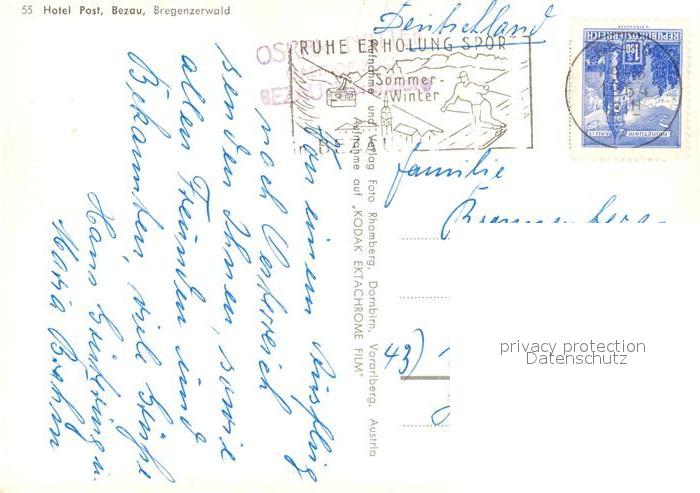 55 Hotel Post, Bezau, Bregenzerwald
Von einem Ausflug
nach Österreich
senden Ihnen, sowie
allen Freunden und
Bekannten, viele Grüße
Hans u.
Maria
Aufnahme und Verlag Foto Rhomberg, Dornbirn, Vorarlberg, Austria
Aufnahme auf „KODAK EKTACHROME FILM"
RUHE ERHOLUNG SPOR
Sommer-
Winter
REPUBLIK ÖSTERREICH
1.50
Deutschland
Familie
43)
privacy protection
Datenschutz